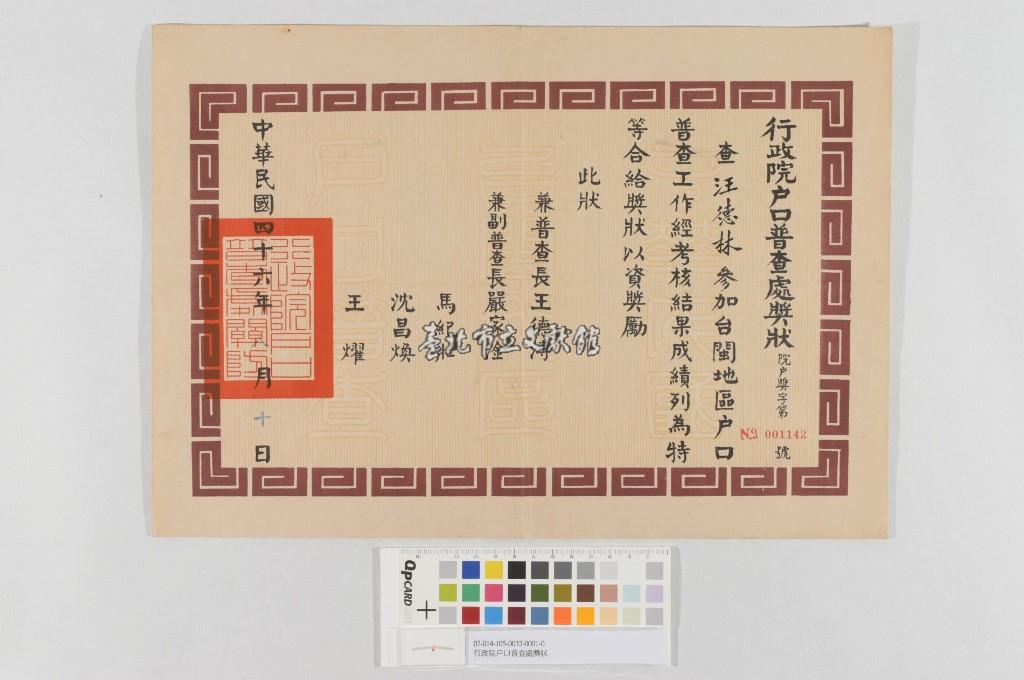 行政院戶口普查處獎狀
院戶獎字第
№ 001142
號
查汪德林參加台閩地區戶口
普查工作經考核結果成績列為特
等合給獎狀以資獎勵
此狀
兼普查長王德溥
兼副普查長嚴家淦
馬紀
沈昌煥
王燿
中華民國四十六年
月十日
臺北市立文獻館
QPCARD
07-014-105-0032-0001-0
行政院戶口普查處獎狀